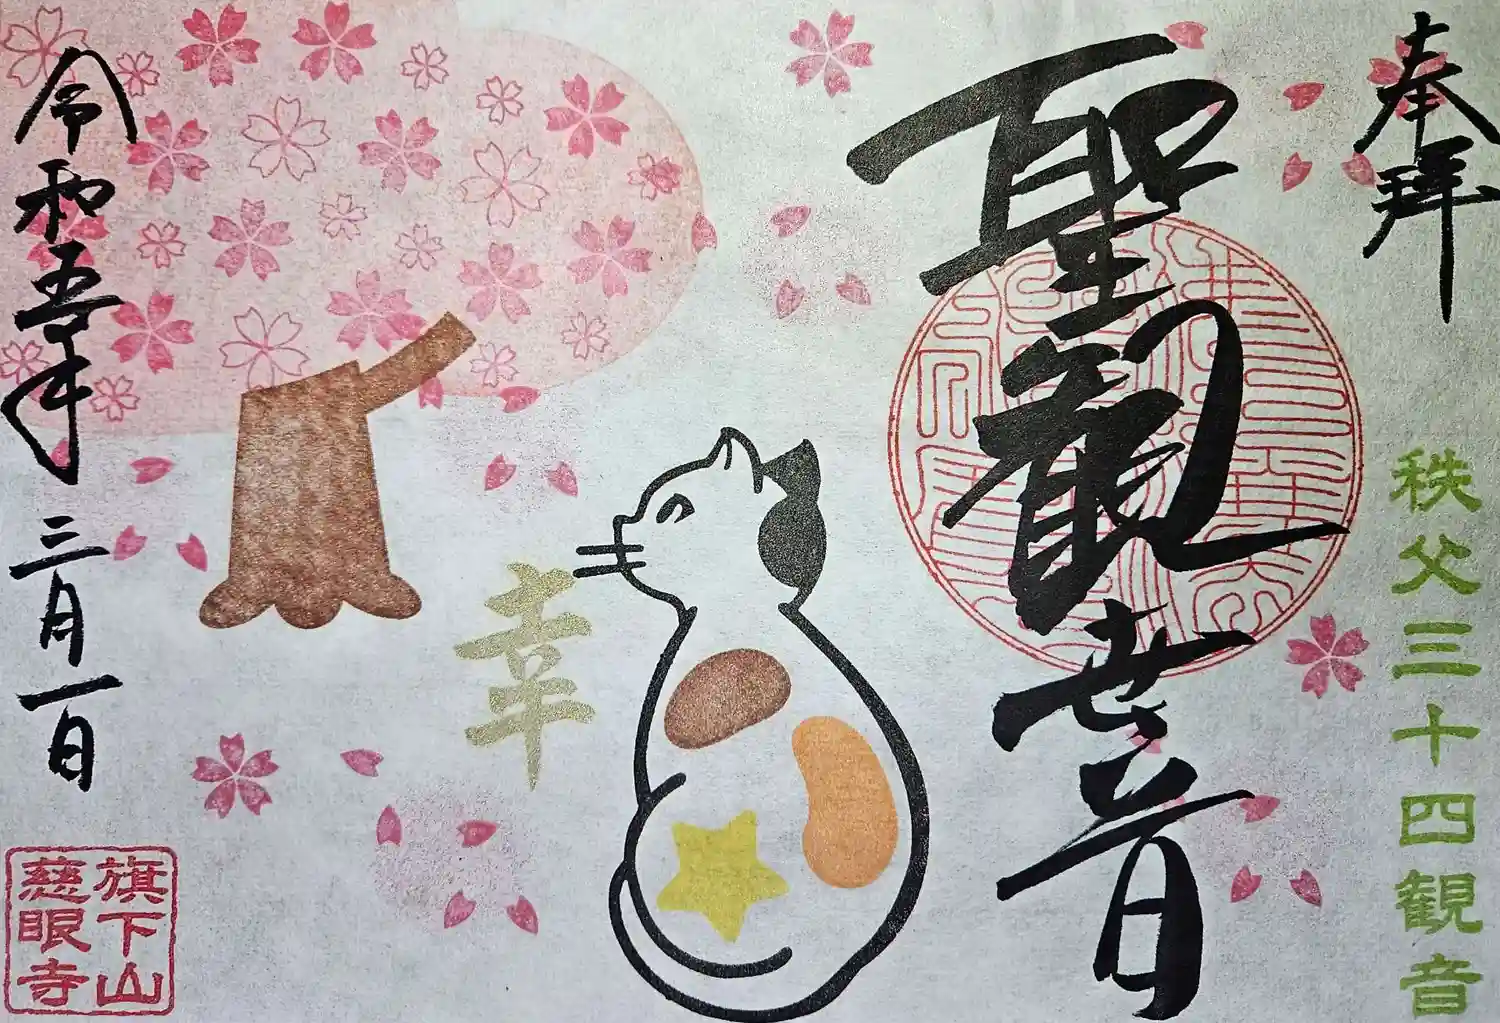 奉拜
秩父三十四観音
聖観世音
幸
令和五年三月一日
旗下山
慈眼寺